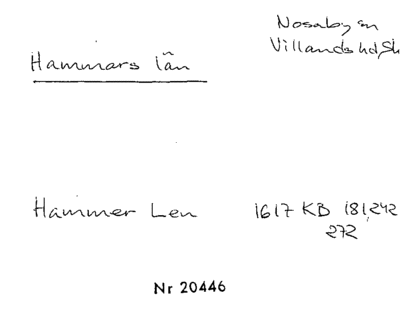 Nosaby sn
Hammars län
Villands hd, Sk
Hammer Len 1617 KB 181, 242
272
Nr 20446